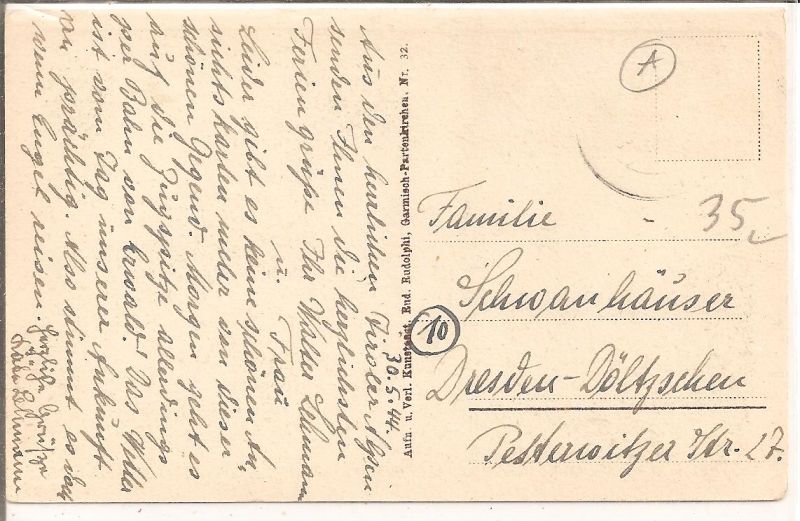 Aus den herrlichen Tiroler Alpen
senden Ihnen die herzlichsten
Feriengrüße Ihr Walter Lehmann
u. Frau
30.5.44.
Leider gibt es keine schönen An-
sichtskarten weiter von dieser
schönen Gegend. Morgen geht es
auf die Zugspitze allerdings
per Bahn von Erwald. Das Wetter
ist vom Tag unserer Ankunft
an prächtig. Also stimmt es doch
wenn Engel reisen.
Herzliche Grüße
Lehmann
Aufn. u. Verl. Kunstanst. Rud. Rudolphi, Garmisch-Partenkirchen. Nr. 32.
A
35
Familie
Schwanhäuser
10
Dresden-Döltzschen
Pesterwitzer Str. 27.